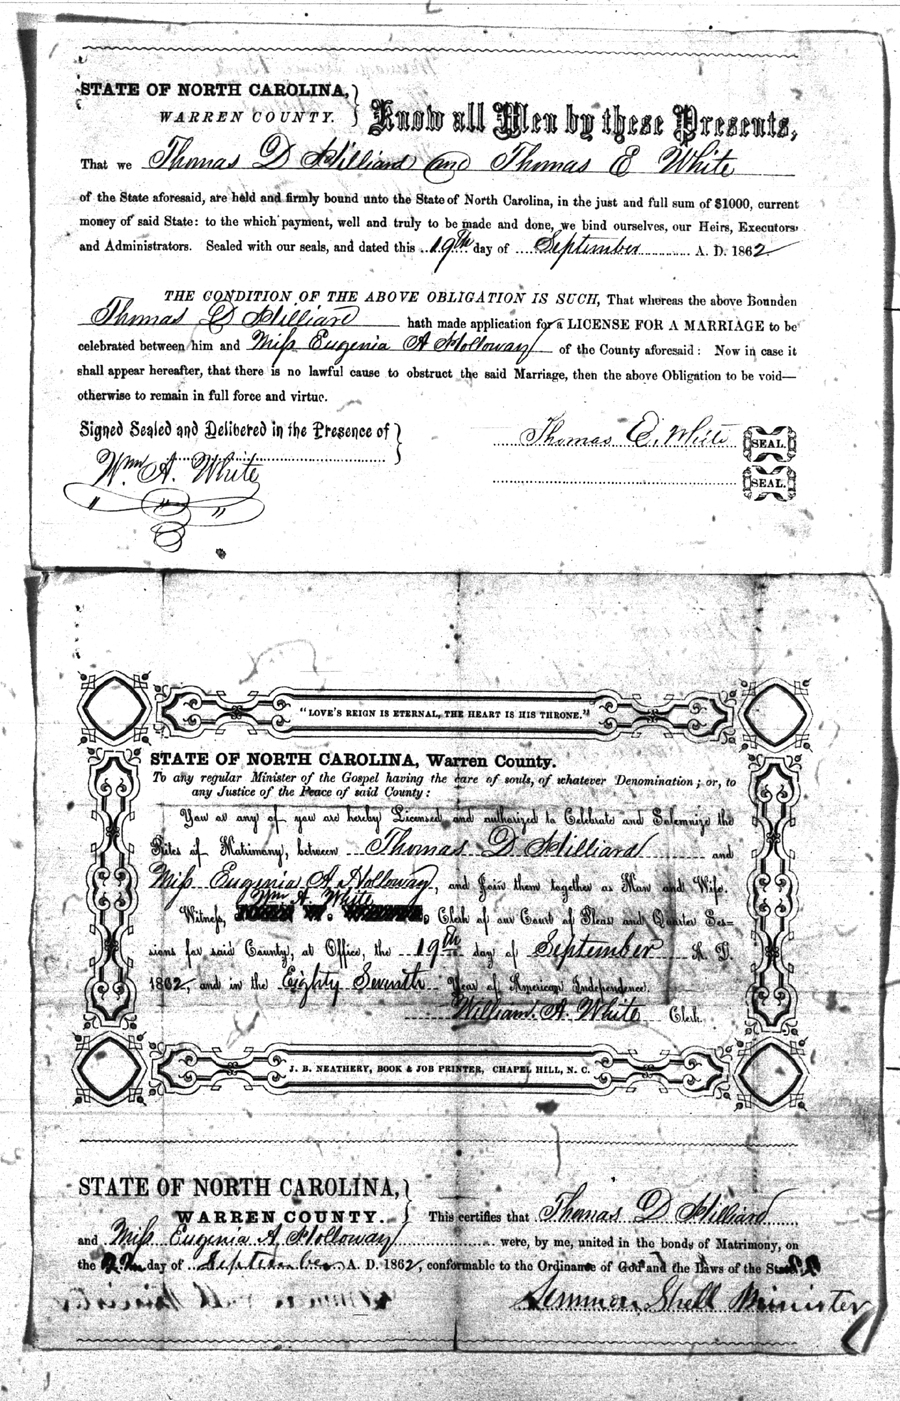 STATE OF NORTH CAROLINA,
WARREN COUNTY.
Know all Men by these Presents,
That we Thomas D Hilliard and Thomas E White
of the State aforesaid, are held and firmly bound unto the State of North Carolina, in the just and full sum of $1000, current
money of said State: to the which payment, well and truly to be made and done, we bind ourselves, our Heirs, Executors
and Administrators. Sealed with our seals, and dated this 19th day of September A. D. 1862
THE CONDITION OF THE ABOVE OBLIGATION IS SUCH, That whereas the above Bounden
Thomas D Hilliard hath made application for a LICENSE FOR A MARRIAGE to be
celebrated between him and Miss Eugenia A Holloway of the County aforesaid: Now in case it
shall appear hereafter, that there is no lawful cause to obstruct the said Marriage, then the above Obligation to be void—
otherwise to remain in full force and virtue.
Signed Sealed and Delibered in the Presence of
Thomas E. White SEAL.
Wm A. White
" " "
SEAL.
"LOVE'S REIGN IS ETERNAL, THE HEART IS HIS THRONE."
STATE OF NORTH CAROLINA, Warren County.
To any regular Minister of the Gospel having the care of souls, of whatever Denomination; or, to
any Justice of the Peace of said County:
You or any of you are hereby Licensed and authorized to Celebrate and Solemnize the
Rites of Matrimony, between Thomas D Hilliard and
Miss Eugenia A Holloway, and Join them together as Man and Wife.
Wm A. White
Witness, Clerk of our Court of Pleas and Quarter Ses-
sions for said County, at Office, the 19th day of September A. D.
1862, and in the Eighty Seventh Year of American Independence.
William. A. White Clerk.
J. B. NEATHERY, BOOK & JOB PRINTER, CHAPEL HILL, N. C.
STATE OF NORTH CAROLINA,
WARREN COUNTY.
This certifies that Thomas D Hilliard
and Miss Eugenia A Holloway were, by me, united in the bonds of Matrimony, on
the day of September A. D. 1862, conformable to the Ordinance of God and the Laws of the State.
Lemmon Shell Minister